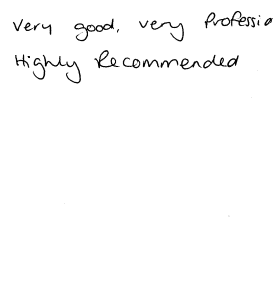 Very good, very Professio
Highly Recommended